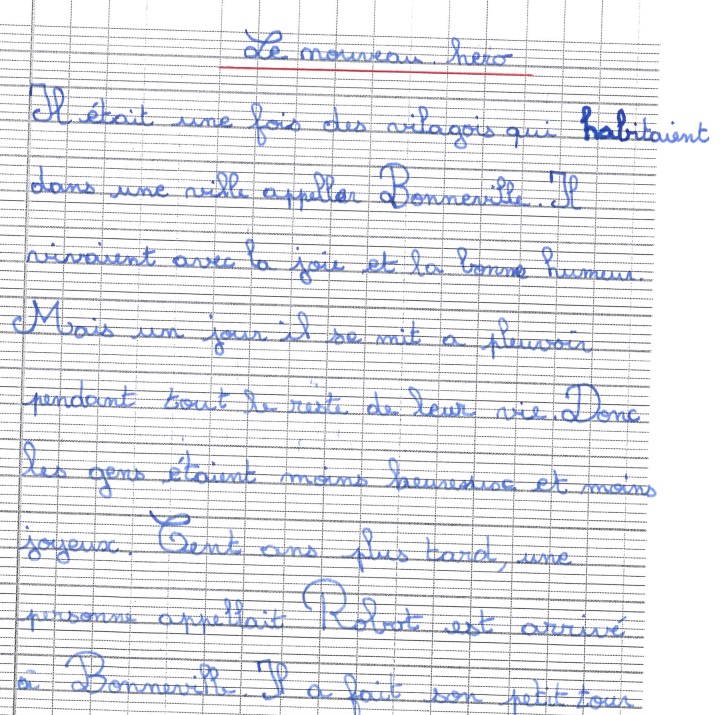 Le nouveau hero
Il était une fois des vilagois qui habitaient
dans une ville appeller Bonneville. Il
vivaient avec la joie et la bonne humeur.
Mais un jour il se mit a pleuvoir
pendant tout le reste de leur vie. Donc
les gens étaient moins heureuse et moins
joyeux. Cent ans plus tard, une
personne appellait Robot est arrivé
à Bonneville. Il a fait son petit tour